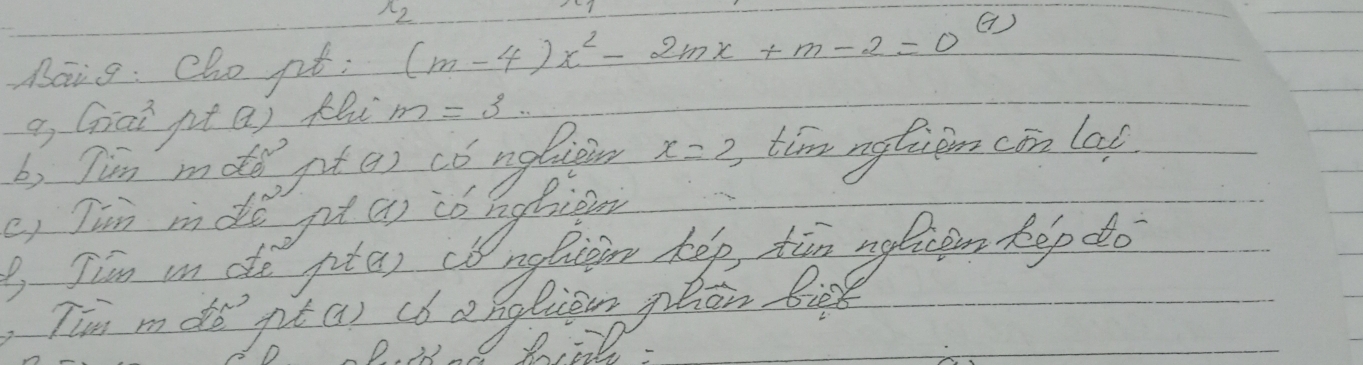 x₂ x₁
Bài 9: Cho pt: (m-4)x² - 2mx + m - 2 = 0 (1)
a, Giải pt (1) khi m = 3.
b, Tìm m để pt (1) có nghiệm x = 2, tìm nghiệm còn lại.
c, Tìm m để pt (1) có nghiệm
d, Tìm m để pt (1) có nghiệm kép, tìm nghiệm kép đó
, Tìm m để pt (1) có 2 nghiệm phân biệt
phương trình: